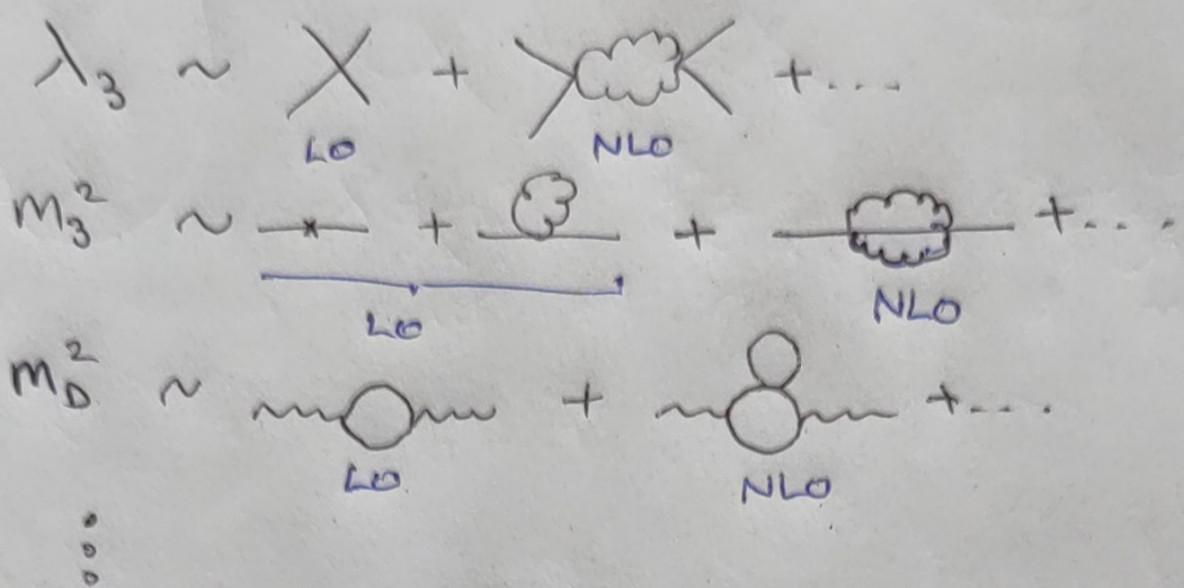 λ₃ ~ + + ....
LO NLO
m₃² ~ + + + ....
LO NLO
m_D² ~ + + ....
LO NLO